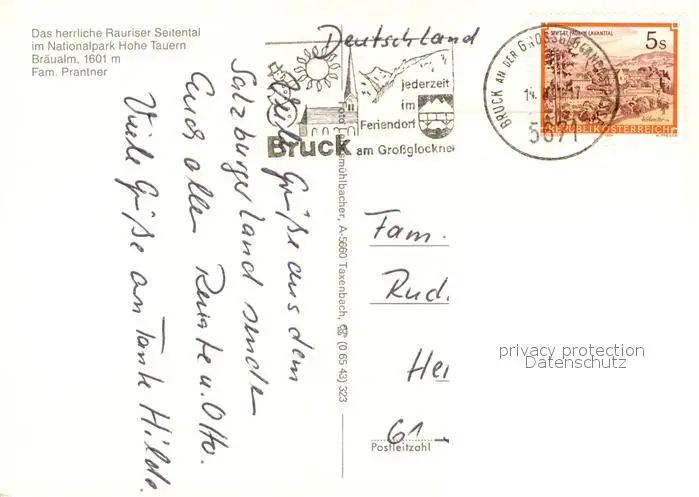 Das herrliche Rauriser Seitental
im Nationalpark Hohe Tauern
Bräualm, 1601 m
Fam. Prantner
Viele Grüße aus dem
Salzburger Land sendet
Euch allen Renate u. Otto.
Viele Grüße an Tante Hilde.
Deutschland
jederzeit
im
Feriendorf
Bruck am Großglockner
BRUCK AN DER
5671
5s
REPUBLIK ÖSTERREICH
mühlbacher, A-5660 Taxenbach, ☎ (0 65 43) 323
Fam.
Rud.
Hei
61
Postleitzahl
privacy protection
Datenschutz